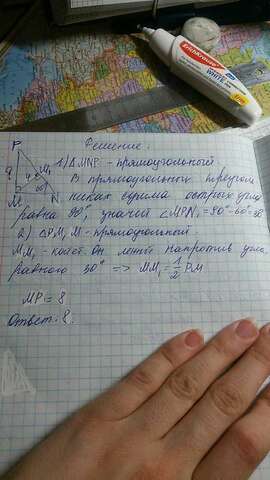 Решение.
P
1) ΔMNP - прямоугольный.
В прямоугольных треуголь
никах сумма острых углов
равна 90°, значит ∠MPN = 90°-60°=30
2) ΔPM₁M - прямоугольный.
MM₁ - катет. Он лежит напротив угла
равного 30° => MM₁ = 1/2 PM
MP = 8
Ответ: 8.
M
N
M₁
60°
4
ErichKrause
WHITE